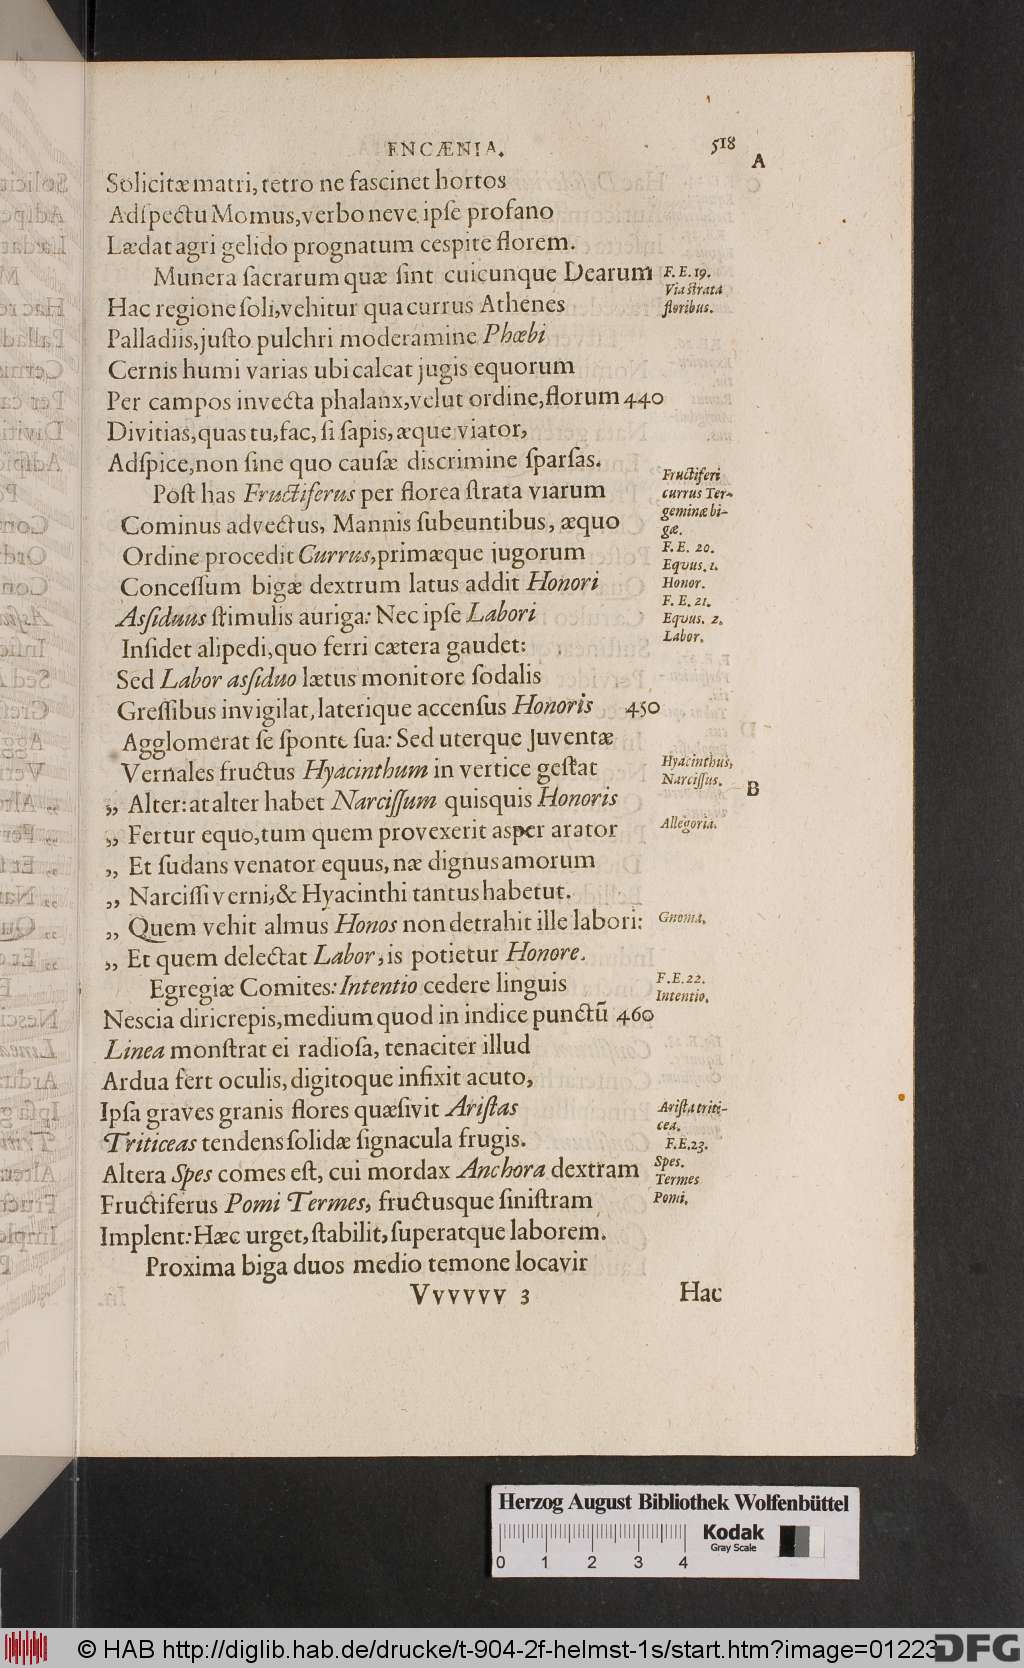 ENCÆNIA. 518
A
Solicitæ matri, tetro ne fascinet hortos
Adſpectu Momus, verbo neve ipſe profano
Lædat agri gelido prognatum ceſpite florem.
Munera ſacrarum quæ ſint cuicunque Dearum
Hac regione ſoli, vehitur qua currus Athenes
Palladiis, juſto pulchri moderamine Phœbi
Cernis humi varias ubi calcat jugis equorum
Per campos invecta phalanx, velut ordine, florum 440
Divitias, quas tu, fac, ſi ſapis, æque viator,
Adſpice, non ſine quo cauſæ discrimine ſparſas.
Poſt has Fructiferus per florea ſtrata viarum
Cominus advectus, Mannis ſubeuntibus, æquo
Ordine procedit Currus, primæque jugorum
Conceſſum bigæ dextrum latus addit Honori
Aſſiduus ſtimulis auriga: Nec ipſe Labori
Inſidet alipedi, quo ferri cætera gaudet:
Sed Labor aſſiduo lætus monitore ſodalis
Greſſibus invigilat, laterique accenſus Honoris 450
Agglomerat ſe ſponte ſua: Sed uterque Juventæ
Vernales fructus Hyacinthum in vertice geſtat
„ Alter: at alter habet Narciſſum quisquis Honoris
„ Fertur equo, tum quem provexerit asper arator
„ Et ſudans venator equus, næ dignus amorum
„ Narciſſi verni, & Hyacinthi tantus habetut.
„ Quem vehit almus Honos non detrahit ille labori:
„ Et quem delectat Labor, is potietur Honore.
Egregiæ Comites: Intentio cedere linguis
Neſcia diricrepis, medium quod in indice punctũ 460
Linea monſtrat ei radioſa, tenaciter illud
Ardua fert oculis, digitoque infixit acuto,
Ipſa graves granis flores quæſivit Ariſtas
Triticeas tendens ſolidæ ſignacula frugis.
Altera Spes comes eſt, cui mordax Anchora dextram
Fructiferus Pomi Termes, fructusque ſiniſtram
Implent: Hæc urget, ſtabilit, ſuperatque laborem.
Proxima biga duos medio temone locavit
Vvvvvv 3 Hac
F. E. 19.
Via ſtrata
floribus.
Fructiferi
currus Ter-
geminæ bi-
gæ.
F. E. 20.
Equus. 1.
Honor.
F. E. 21.
Equus. 2.
Labor.
Hyacinthus,
Narciſſus.
B
Allegoria.
Gnoma.
F. E. 22.
Intentio.
Ariſta triti-
cea.
F. E. 23.
Spes.
Termes
Pomi.
Herzog August Bibliothek Wolfenbüttel
0 1 2 3 4
Kodak
Gray Scale
© HAB http://diglib.hab.de/drucke/t-904-2f-helmst-1s/start.htm?image=01223
DFG